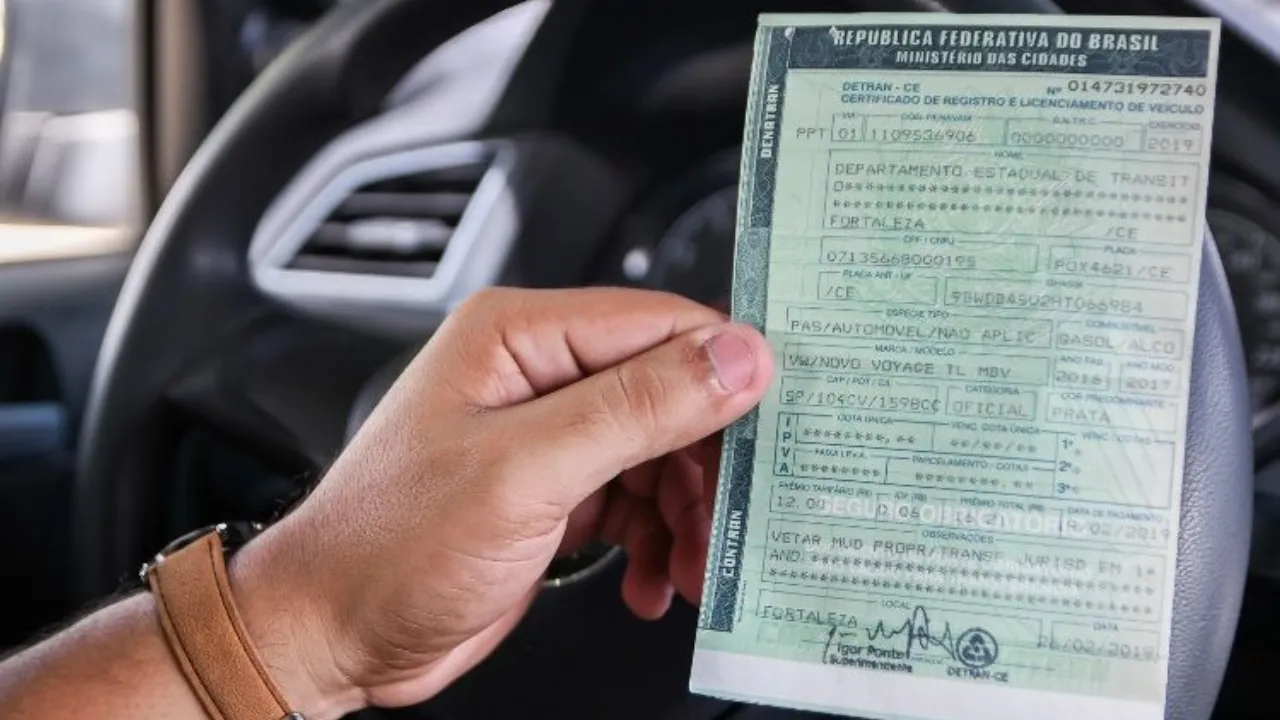 REPUBLICA FEDERATIVA DO BRASIL
MINISTÉRIO DAS CIDADES
DENATRAN
DETRAN - CE
Nº 014731972740
CERTIFICADO DE REGISTRO E LICENCIAMENTO DE VEÍCULO
VIA COD. RENAVAM R.N.T.R.C. EXERCÍCIO
PPT 01 1109536906 0000000000 2019
NOME
DEPARTAMENTO ESTADUAL DE TRANSIT
O********************************
*********************************
FORTALEZA /CE
CPF / CNPJ PLACA
07135668000195 POX4621/CE
PLACA ANT / UF CHASSI
/CE 9BWDB45U2HT066984
ESPÉCIE TIPO COMBUSTÍVEL
PAS/AUTOMOVEL/NAO APLIC GASOL/ALCO
MARCA / MODELO ANO FAB ANO MOD
VW/NOVO VOYAGE TL MBV 2016 2017
CAP / POT / CIL CATEGORIA COR PREDOMINANTE
5P/104CV/1598CC OFICIAL PRATA
IPVA
COTA ÚNICA VENC. COTA ÚNICA VENC. COTAS
********,** **/**/** 1ª
FAIXA I.P.V.A. PARCELAMENTO / COTAS 2ª
******** ********,** 3ª
PRÊMIO TARIFÁRIO (R$) IOF (R$) PRÊMIO TOTAL (R$) DATA DE PAGAMENTO
SEGURO OBRIGATÓRIO
OBSERVAÇÕES
VETAR MUD PROPR/TRANSF JURISD EM 1*
ANO.*****************************
*********************************
CONTRAN
LOCAL DATA
FORTALEZA 26/02/2019
Igor Ponte
Superintendente
DETRAN-CE